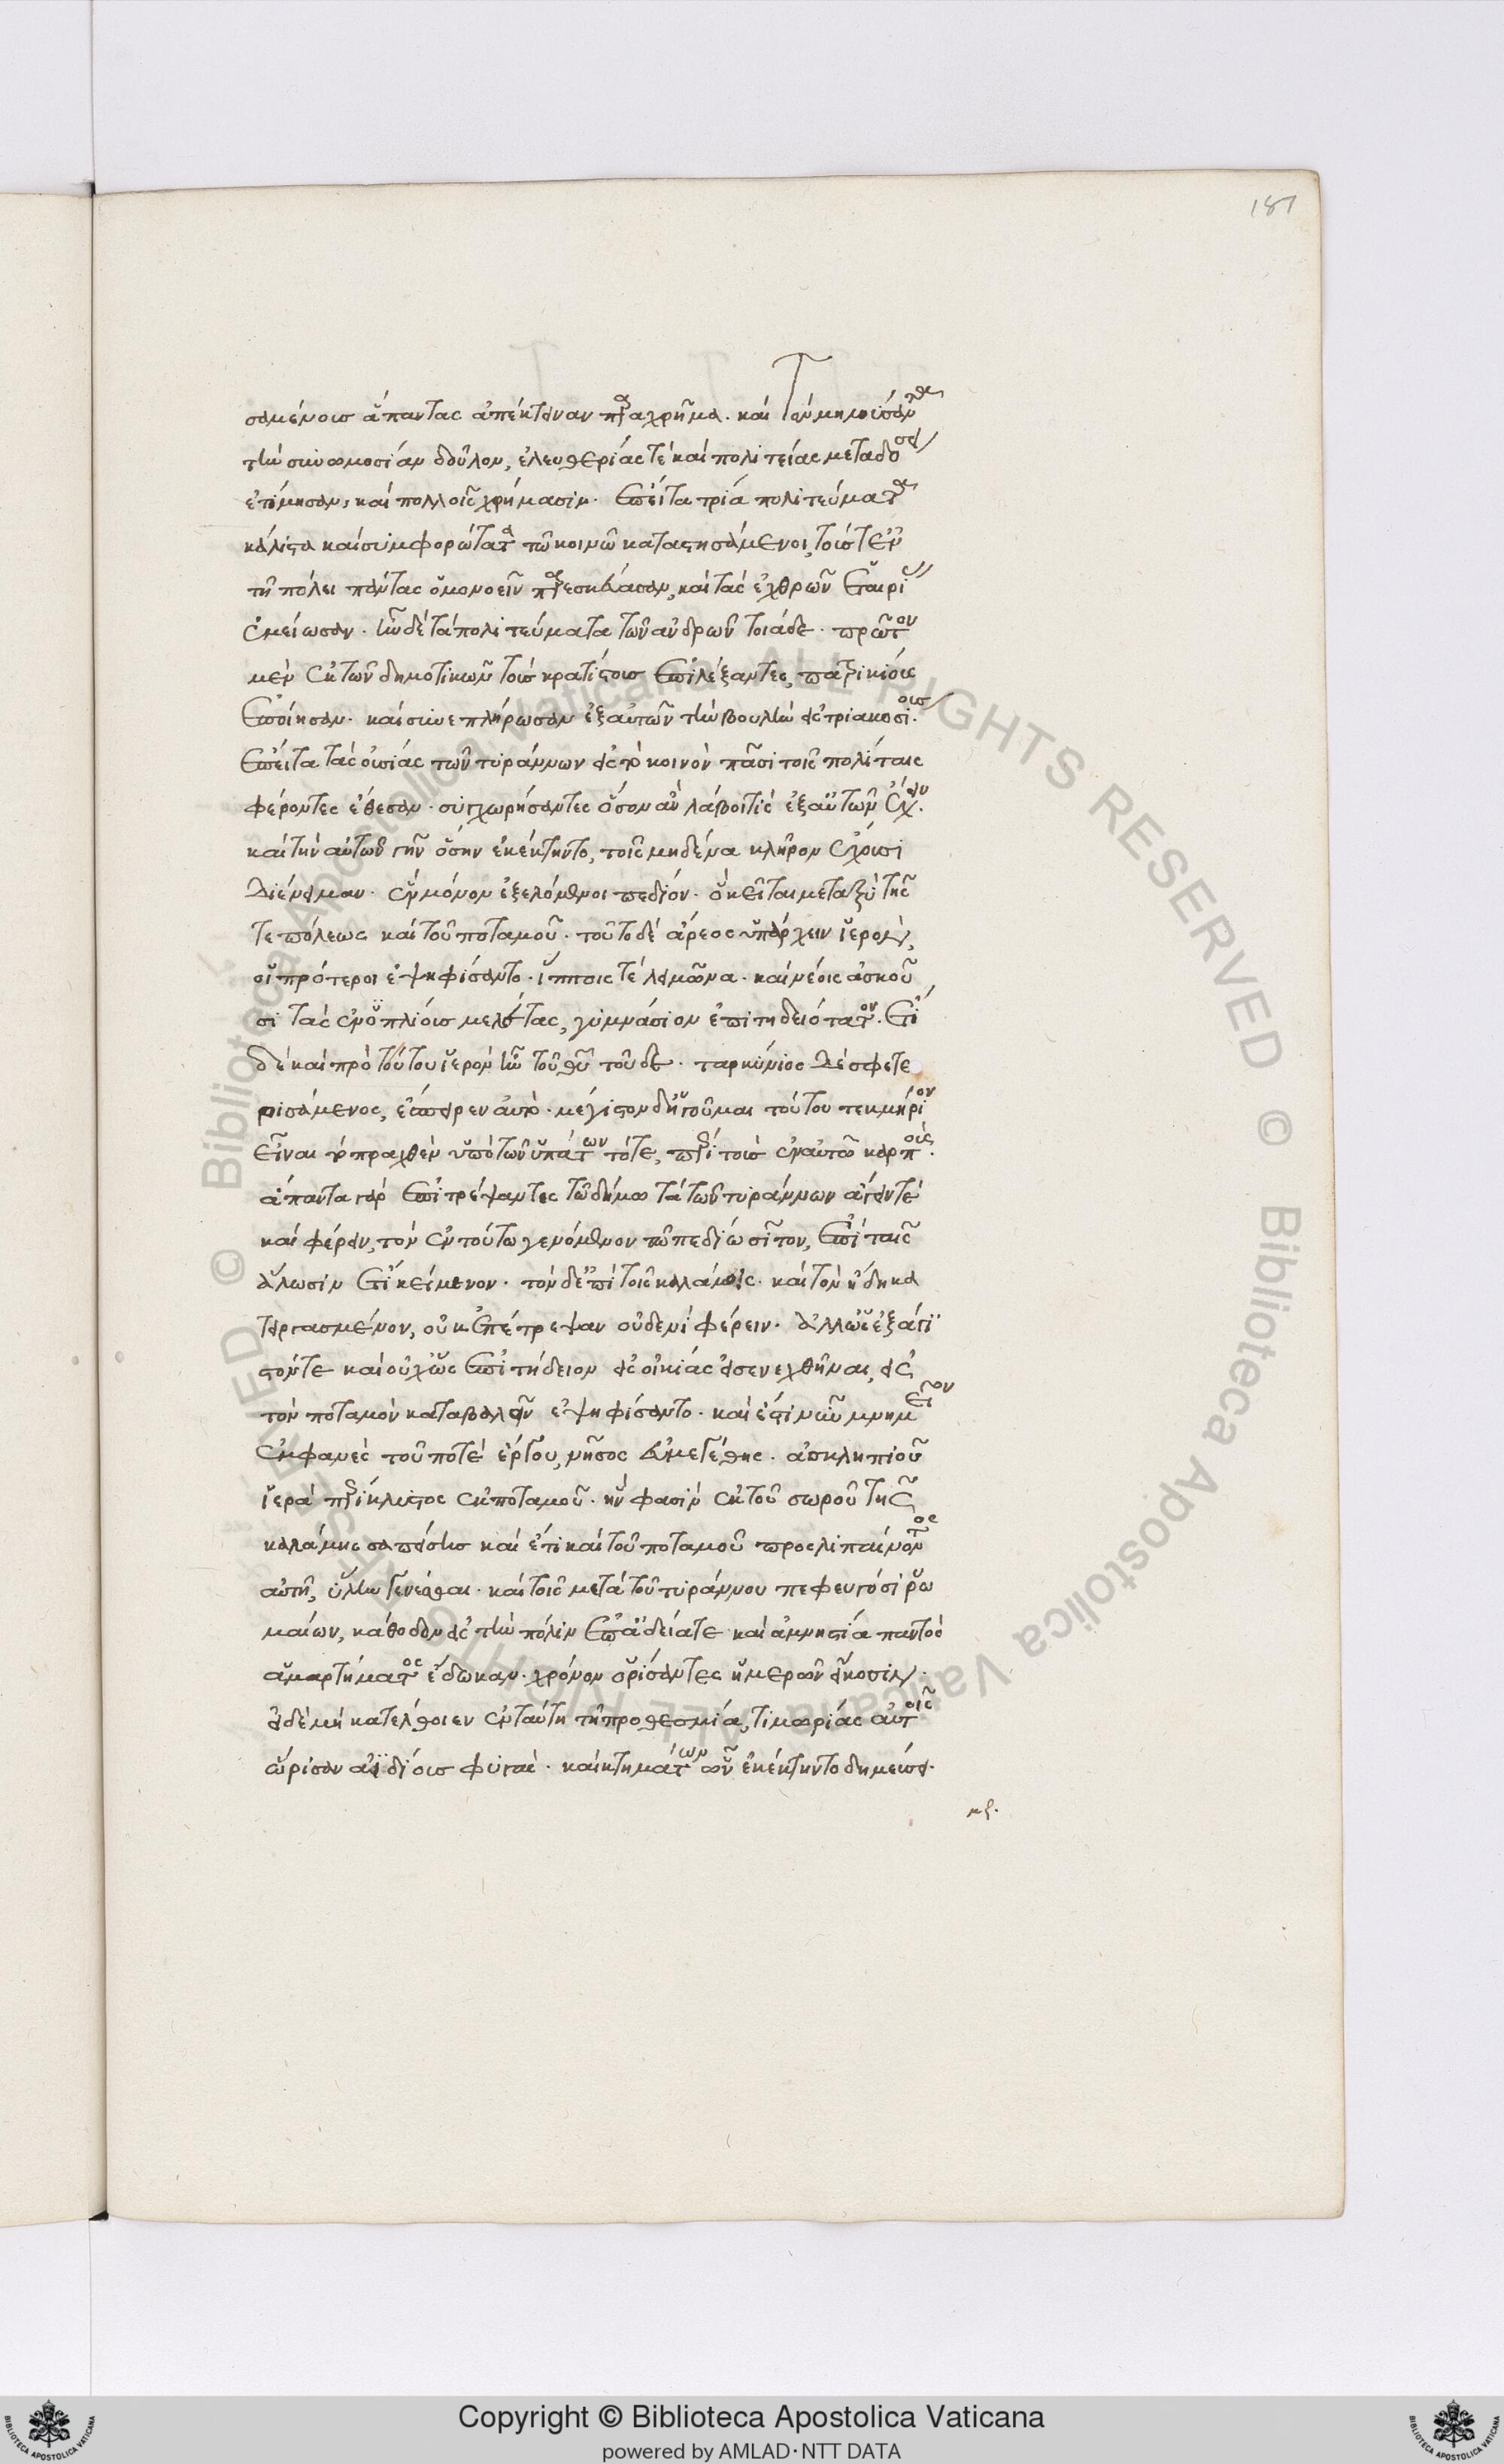 187
σαμένους ἅπαντας ἀπέκτειναν παραχρῆμα. καὶ τὸν μηνύσαντα
τὴν συνωμοσίαν δοῦλον, ἐλευθερίας τὲ καὶ πολιτείας μεταδόσει
ἐτίμησαν, καὶ πολλοῖς χρήμασιν. ἔπειτα τρία πολιτεύματα
κάλιστα καὶ συμφορώτατα τῶ κοινῶ καταστησάμενοι, τούς τε ἐν
τῇ πόλει πάντας ὁμονοεῖν παρεσκεύασαν, καὶ τὰς ἐχθρῶν ἑταιρίας
ἐμείωσαν. ἦν δὲ τὰ πολιτεύματα τῶν ἀνδρῶν τοιάδε. πρῶτον
μὲν ἐκ τῶν δημοτικῶν τοὺς κρατίστους ἐπιλέξαντες, πατρικίους
ἐποίησαν. καὶ συνεπλήρωσαν ἐξ αὐτῶν τὴν βουλὴν εἰς τριακοσίους.
ἔπειτα τὰς οὐσίας τῶν τυράννων εἰς τὸ κοινὸν πᾶσι τοῖς πολίταις
φέροντες ἔθεσαν. συγχωρήσαντες ὅσον ἂν λάβοι τίς ἐξ αὐτῶν ἔχειν.
καὶ τὴν αὐτῶν γῆν ὅσην ἐκέκτηντο, τοῖς μηδένα κλῆρον ἔχουσι
διένειμαν. ἓν μόνον ἐξελόμενοι πεδίον. ὃ κεῖται μεταξὺ τῆς
τε πόλεως καὶ τοῦ ποταμοῦ. τοῦτο δὲ ἄρεος ὑπάρχειν ἱερὸν,
οἱ πρότεροι ἐψηφίσαντο. ἵπποις τὲ λειμῶνα. καὶ νέοις ἀσκοῦ
σι τὰς ἐνοπλίους μελέτας, γυμνάσιον ἐπιτηδειότατον. ὅτι
δὲ καὶ πρὸ τούτου ἱερὸν ἦν τοῦ θεοῦ τοῦδε. ταρκύνιος δὲ σφετε
ρισάμενος, ἔσπειρεν αὐτὸ. μέγιστον ἡγοῦμαι τούτου τεκμήριον
εἶναι τὸ πραχθὲν ὑπὸ τῶν ὑπάτων τότε, περὶ τοὺς ἐν αὐτῶ καρπούς.
ἅπαντα γὰρ ἐπιτρέψαντες τῶ δήμω τὰ τῶν τυράννων ἄγειν τὲ
καὶ φέρειν, τὸν ἐν τούτω γενόμενον τῶ πεδίω σῖτον, ἐπὶ ταῖς
ἅλωσιν ἔτι κείμενον. τὸν δὲ ἐπὶ τοῖς καλάμοις. καὶ τὸν ἤδη κα
τειργασμένον, οὐκ ἐπέτρεψαν οὐδενὶ φέρειν. ἀλλ' ὡς ἐξάγι
στόν τε καὶ οὐχ ὡς ἐπιτήδειον εἰς οἰκίας εἰσενεχθῆναι, εἰς
τὸν ποταμὸν καταβαλεῖν ἐψηφίσαντο. καὶ ἔστι νῦν μνημεῖον
ἐμφανὲς τοῦ ποτὲ ἔργου, νῆσος εὐμεγέθης. ἀσκληπιοῦ
ἱερὰ περίκλυστος ἐκ ποταμοῦ. ἥν φασὶν ἐκ τοῦ σωροῦ τῆς
καλάμης σαπείσης καὶ ἔτι καὶ τοῦ ποταμοῦ προσλιπαίνοντος
αὐτῇ, ὕλην γενέσθαι. καὶ τοῖς μετὰ τοῦ τυράννου πεφευγόσι ῥω
μαίων, κάθοδον εἰς τὴν πόλιν ἐπ' ἀδείᾳ τε καὶ ἀμνηστία παντὸς
ἁμαρτήματος ἔδωκαν. χρόνον ὁρίσαντες ἡμερῶν εἴκοσιν.
εἰ δὲ μὴ κατέλθοιεν ἐν ταύτη τῇ προθεσμία, τιμωρίας αὐτοῖς
ὥρισαν ἀϊδίους φυγὰς. καὶ κτημάτων ὧν ἐκέκτηντο δημεύσεις.
Copyright © Biblioteca Apostolica Vaticana
powered by AMLAD·NTT DATA